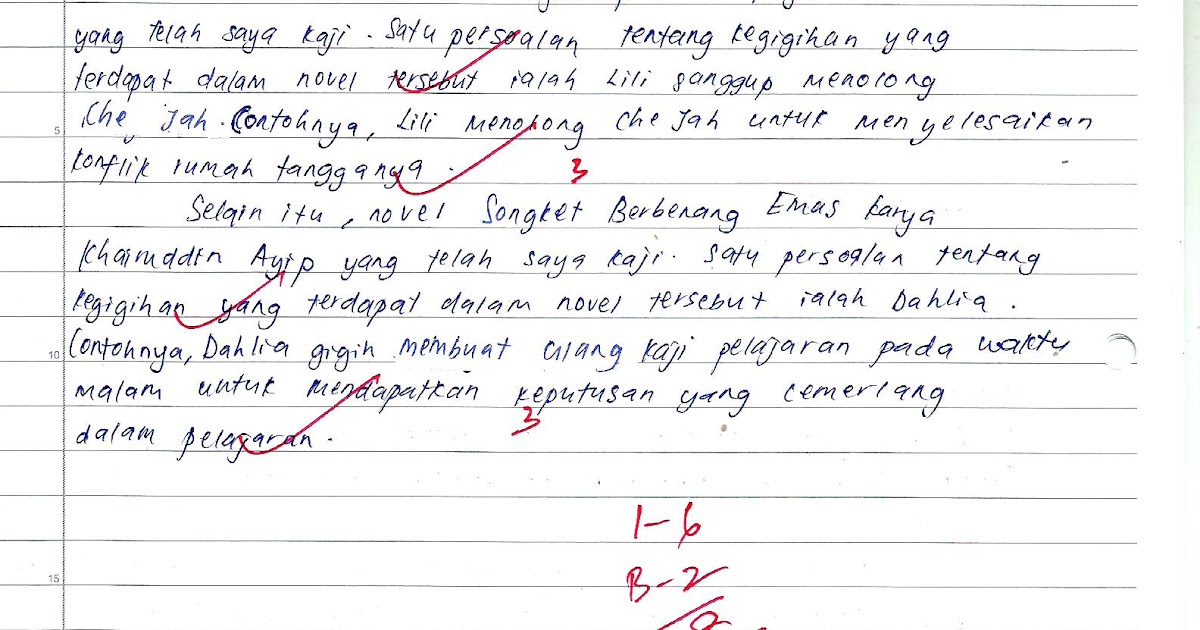 yang telah saya kaji. Satu persoalan tentang kegigihan yang
terdapat dalam novel tersebut ialah Lili sanggup menolong
Che Jah. Contohnya, Lili menolong Che Jah untuk menyelesaikan
5
konflik rumah tangganya.
3
Selain itu, novel Songket Berbenang Emas karya
Khairuddin Ayip yang telah saya kaji. Satu persoalan tentang
kegigihan yang terdapat dalam novel tersebut ialah Dahlia.
10
Contohnya, Dahlia gigih membuat ulang kaji pelajaran pada waktu
malam untuk mendapatkan keputusan yang cemerlang
3
dalam pelajaran.
1-6
15
B-2